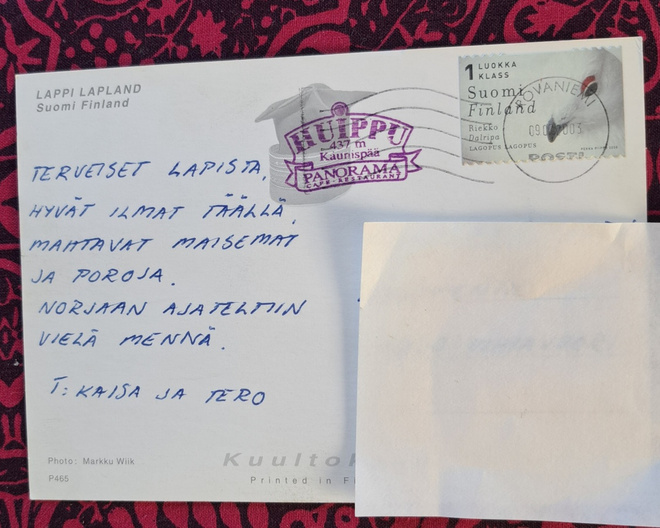 LAPPI LAPLAND
Suomi Finland
HUIPPU
437 m
Kaunispää
PANORAMA
CAFE-RESTAURANT
1 LUOKKA
KLASS
Suomi
Finland
Riekko
Dalripa
LAGOPUS LAGOPUS
ROVANIEMI
POSTI
TERVEISET LAPISTA,
HYVÄT ILMAT TÄÄLLÄ,
MAHTAVAT MAISEMAT
JA POROJA.
NORJAAN AJATELTIIN
VIELÄ MENNÄ.
T: KAISA JA TERO
Photo: Markku Wiik
P465
Printed in